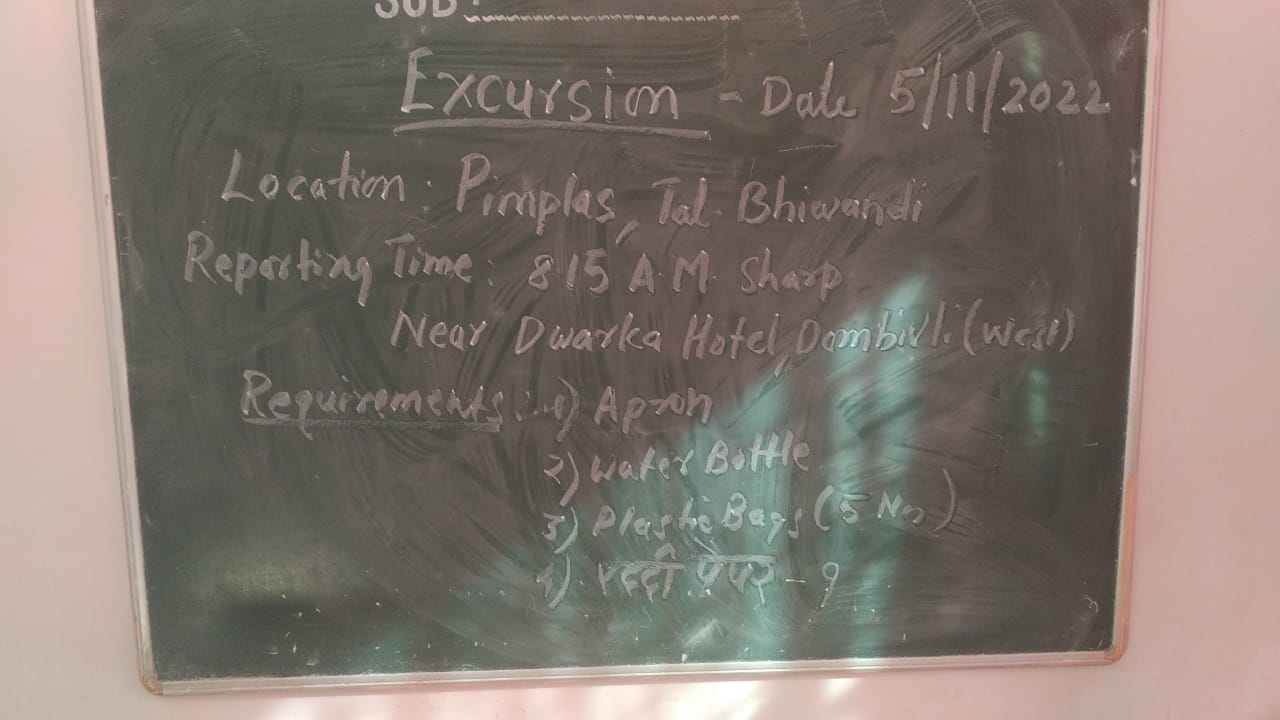 SUB:
Excursion - Date 5/11/2022
Location: Pimplas, Tal. Bhiwandi
Reporting Time: 8 15 A.M. Sharp
Near Dwarka Hotel, Dombivli (West)
Requirements: 1) Apron
2) Water Bottle
3) Plastic Bags (5 No)
4) रद्दी पेपर - 9